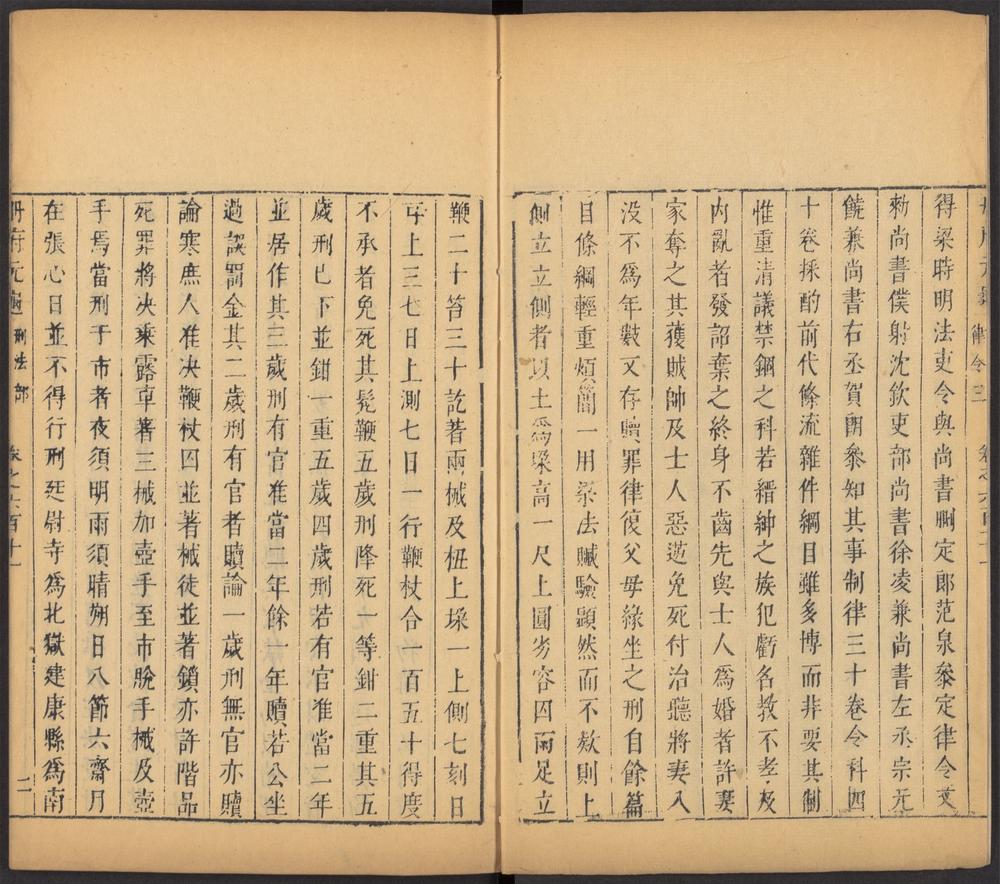 律令三
得梁時明法吏令與尚書刪定郎范泉叅定律令又
勑尚書僕射沈欽吏部尚書徐凌兼尚書左丞宗元
饒兼尚書右丞賀朗叅知其事制律三十卷令科四
十卷採酌前代條流雜件綱目雖多博而非要其制
惟重清議禁錮之科若縉紳之族犯虧名教不孝及
內亂者發詔棄之終身不齒先與士人為婚者許妻
家奪之其獲賊帥及士人惡逆免死付治聽將妻入
没不為年數又存贖罪律復父母緣坐之刑自餘篇
目條綱輕重煩簡一用梁法贓驗顯然而不欵則上
側立立側者以土為垜高一尺上圓劣容囚兩足立
鞭二十笞三十訖著兩械及杻上垜一上側七刻日
再上三七日上測七日一行鞭杖合一百五十得度
不承者免死其髡鞭五歲刑降死一等鉗二重其五
歲刑巳下並鉗一重五歲四歲刑若有官准當二年
並居作其三歲刑有官准當二年餘一年贖若公坐
過誤罰金其二歲刑有官者贖論一歲刑無官亦贖
論寒庶人准决鞭杖囚並著械徒並著鎖亦許階品
死罪將决乘露車著三械加壺手至市脫手械及壺
手焉當刑于市者夜須明雨須晴朔日八節六齋月
在張心日並不得行刑廷尉寺為北獄建康縣為南
冊府元龜 刑法部 卷之六百十一 二